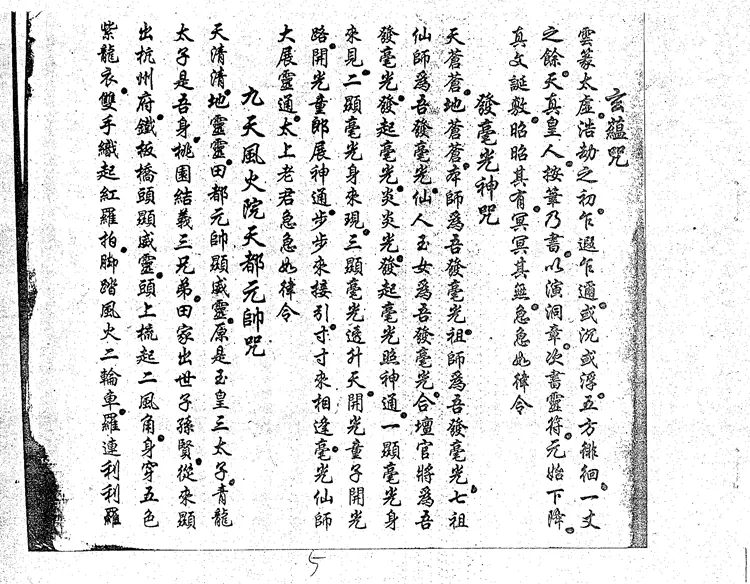 玄蘊咒
雲篆太虛浩劫之初乍遐乍邇或沉或浮五方徘徊一丈
之餘天真皇人按筆乃書以演洞章次書靈符元始下降
真文誕敷昭昭其有冥冥其無急急如律令
發毫光神咒
天蒼蒼地蒼蒼本師爲吾發毫光祖師爲吾發毫光七祖
仙師爲吾發毫光仙人玉女爲吾發毫光合壇官將爲吾
發毫光發起毫光炎炎光發起毫光照神通一顯毫光身
來見二顯毫光身來現三顯毫光透升天開光童子開光
路開光童郎展神通步步來接引寸寸來相逢毫光仙師
大展靈通太上老君急急如律令
九天風火院天都元帥咒
天清清地靈靈田都元帥顯威靈原是玉皇三太子青龍
太子是吾身桃園結義三兄弟田家出世子孫賢從來顯
出杭州府鐵板橋頭顯威靈頭上梳起二風角身穿五色
紫龍衣雙手織起紅羅拍腳踏風火二輪車羅連利利羅
5